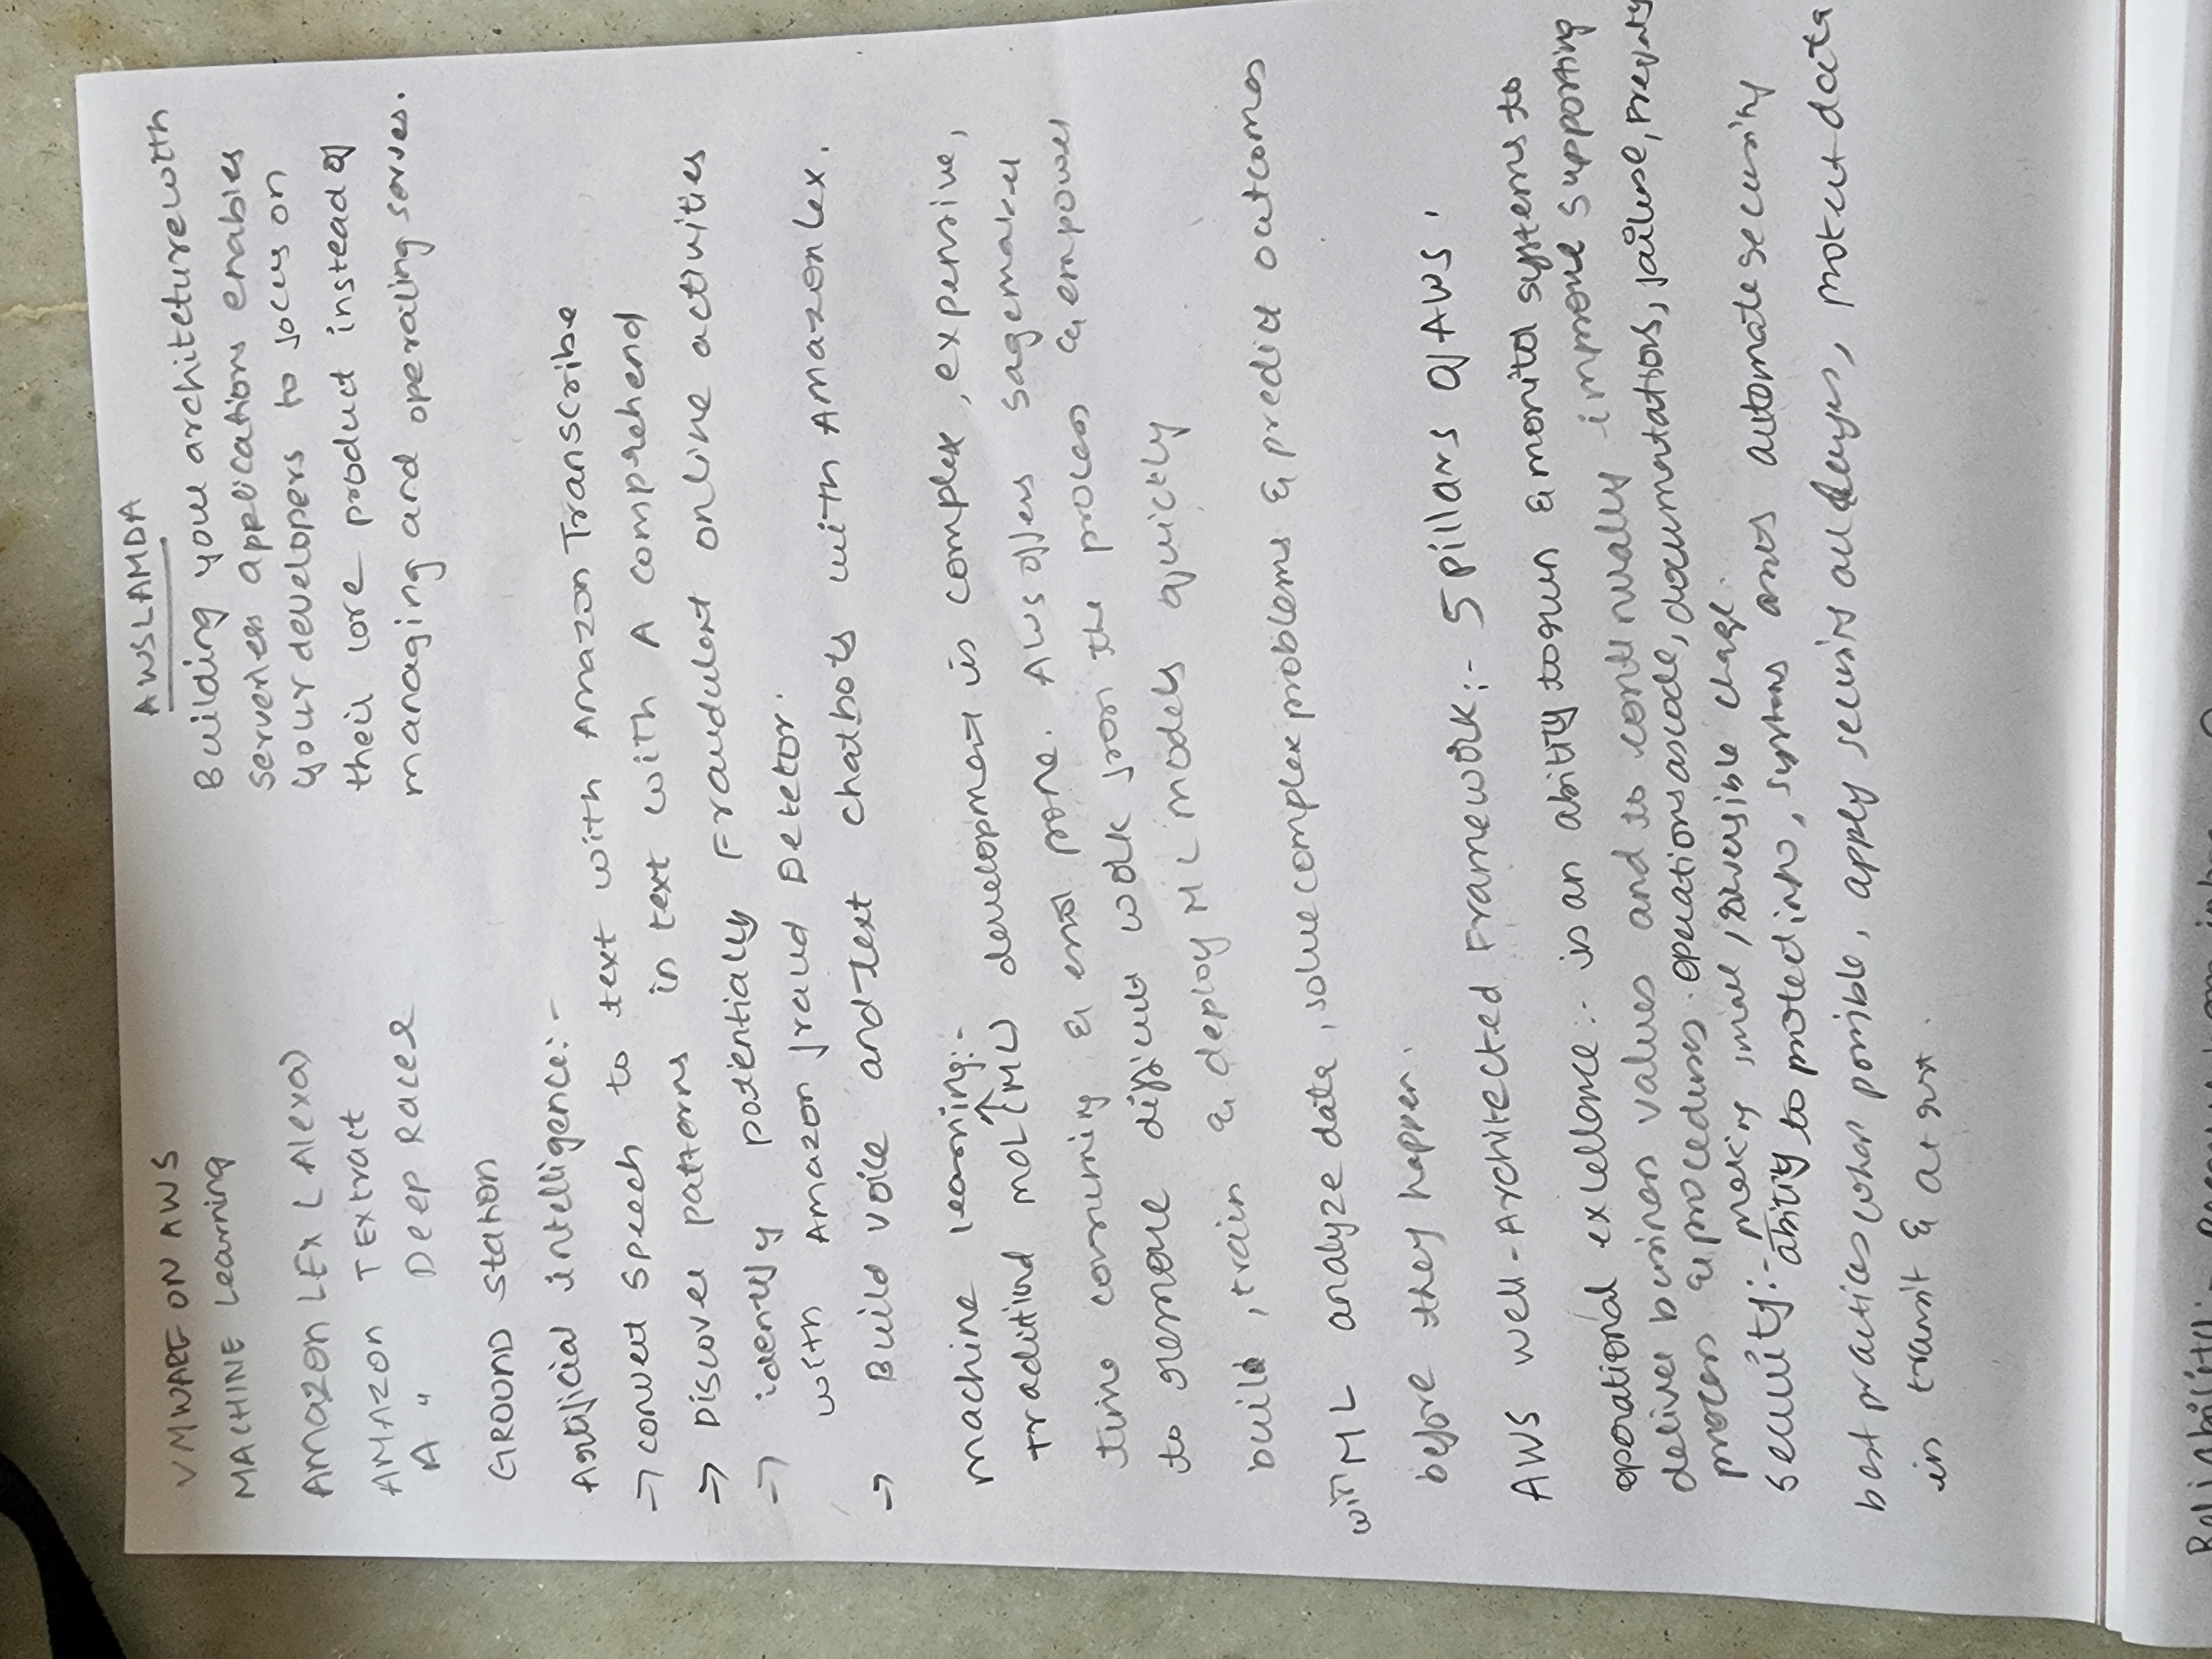 VMWARE ON AWS
MACHINE Learning
Amazon LEx ( Alexa)
AMAZon TExtract
A " Deep Racer
GROUND station
AWSLAMDA
Building your architeturewith
serverless applications enables
your developers to focus on
their core product instead of
managing and operating serves.
Artificial intelligence:-
→ convert speech to text with Amazon Transcribe
→ Discover patterns in text with A comprehend
→ identify potentially Fraudulent online activities
with Amazon fraud Detetor.
→ Build voice and text chatbots with Amazon lex.
machine learning:-
traditional (ML) development is complex, expensive,
time consuming & error prone. AWS offers sagemaker
to remove difficult work from the process & empower
build, train & deploy ML models quickly
with ML analyze data, solve complex problems & predict outcomes
before they happen.
AWS well-Architected Framework:- 5 pillars of AWS.
operational excellence:- is an ability to run & monitor systems to
deliver business values and to continually improve supporting
process & procedures. operations as code, documentations, failure,
making small, reversible chage.
security:- ability to protect info, systems assets automate security
best practices when possible, apply security all layers, protect data
in transit & at rest.
Reliability:-